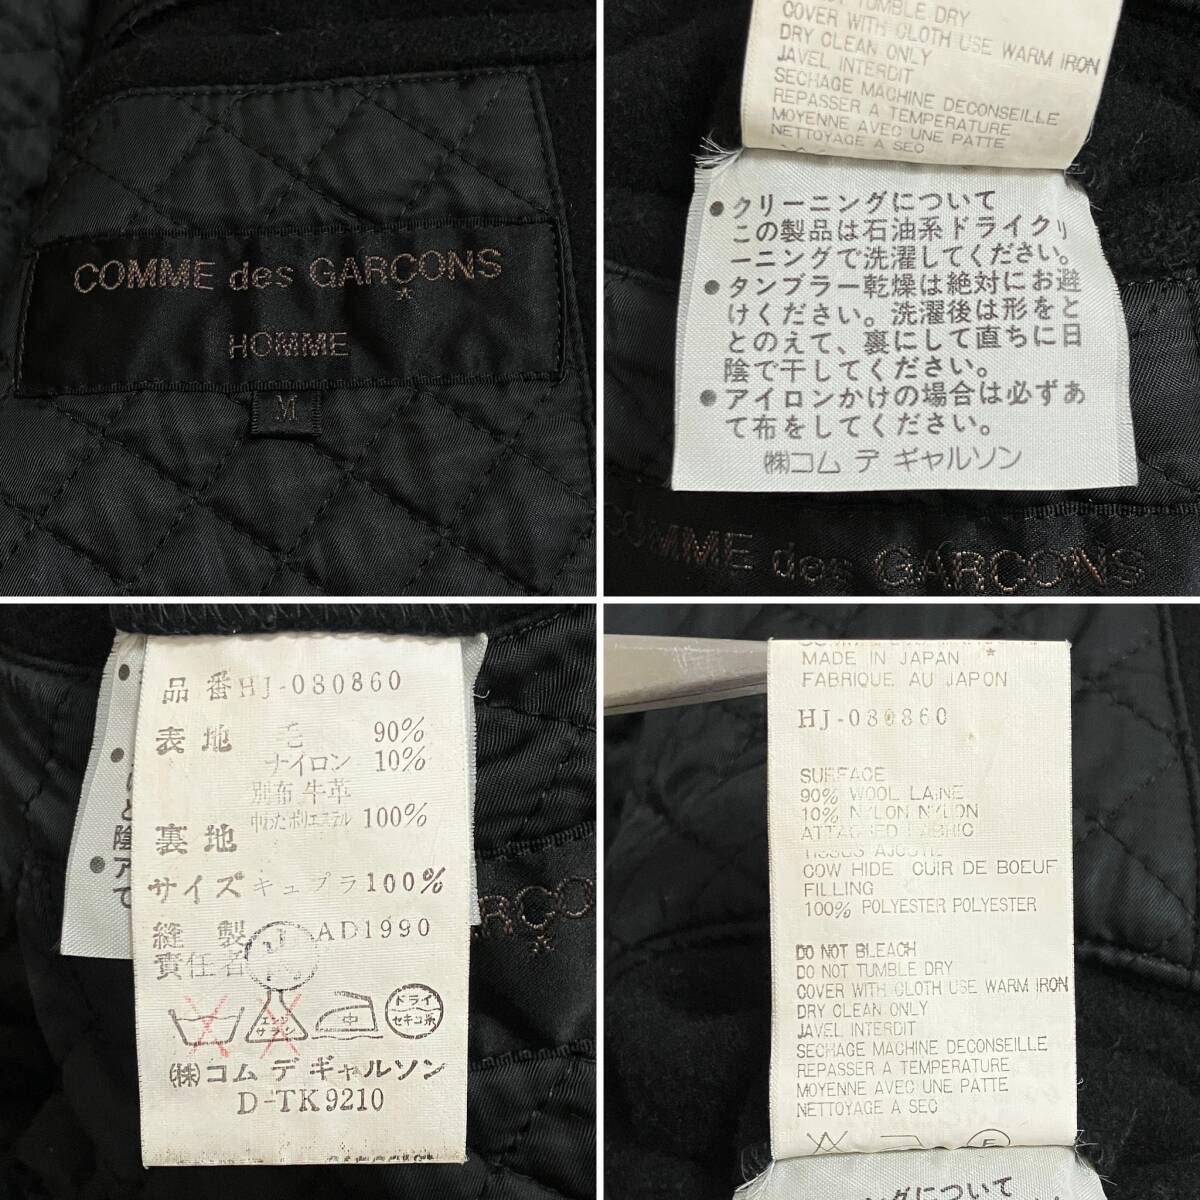 COMME des GARÇONS
HOMME
M
NOT TUMBLE DRY
COVER WITH CLOTH USE WARM IRON
DRY CLEAN ONLY
JAVEL INTERDIT
SECHAGE MACHINE DECONSEILLE
REPASSER A TEMPERATURE
MOYENNE AVEC UNE PATTE
NETTOYAGE A SEC
●クリーニングについて
この製品は石油系ドライクリ
ーニングで洗濯してください。
●タンブラー乾燥は絶対にお避
けください。洗濯後は形をと
とのえて、裏にして直ちに日
陰で干してください。
●アイロンかけの場合は必ずあ
て布をしてください。
㈱コム デ ギャルソン
COMME des GARCONS
品番HJ-030860
表地 毛 90%
ナイロン 10%
別布 牛革
中わた ポリエステル 100%
裏地
サイズ キュプラ 100%
縫製 AD1990
責任者
エンソ サラシ 中 ドライ セキユ系
㈱コム デ ギャルソン
D-TK9210
陰
●ア
て
MADE IN JAPAN
FABRIQUE AU JAPON
HJ-030860
SURFACE
90% WOOL LAINE
10% NYLON NYLON
ATTACHED FABRIC
TISSUS AJOUTE
COW HIDE CUIR DE BOEUF
FILLING
100% POLYESTER POLYESTER
DO NOT BLEACH
DO NOT TUMBLE DRY
COVER WITH CLOTH USE WARM IRON
DRY CLEAN ONLY
JAVEL INTERDIT
SECHAGE MACHINE DECONSEILLE
REPASSER A TEMPERATURE
MOYENNE AVEC UNE PATTE
NETTOYAGE A SEC
ングについて